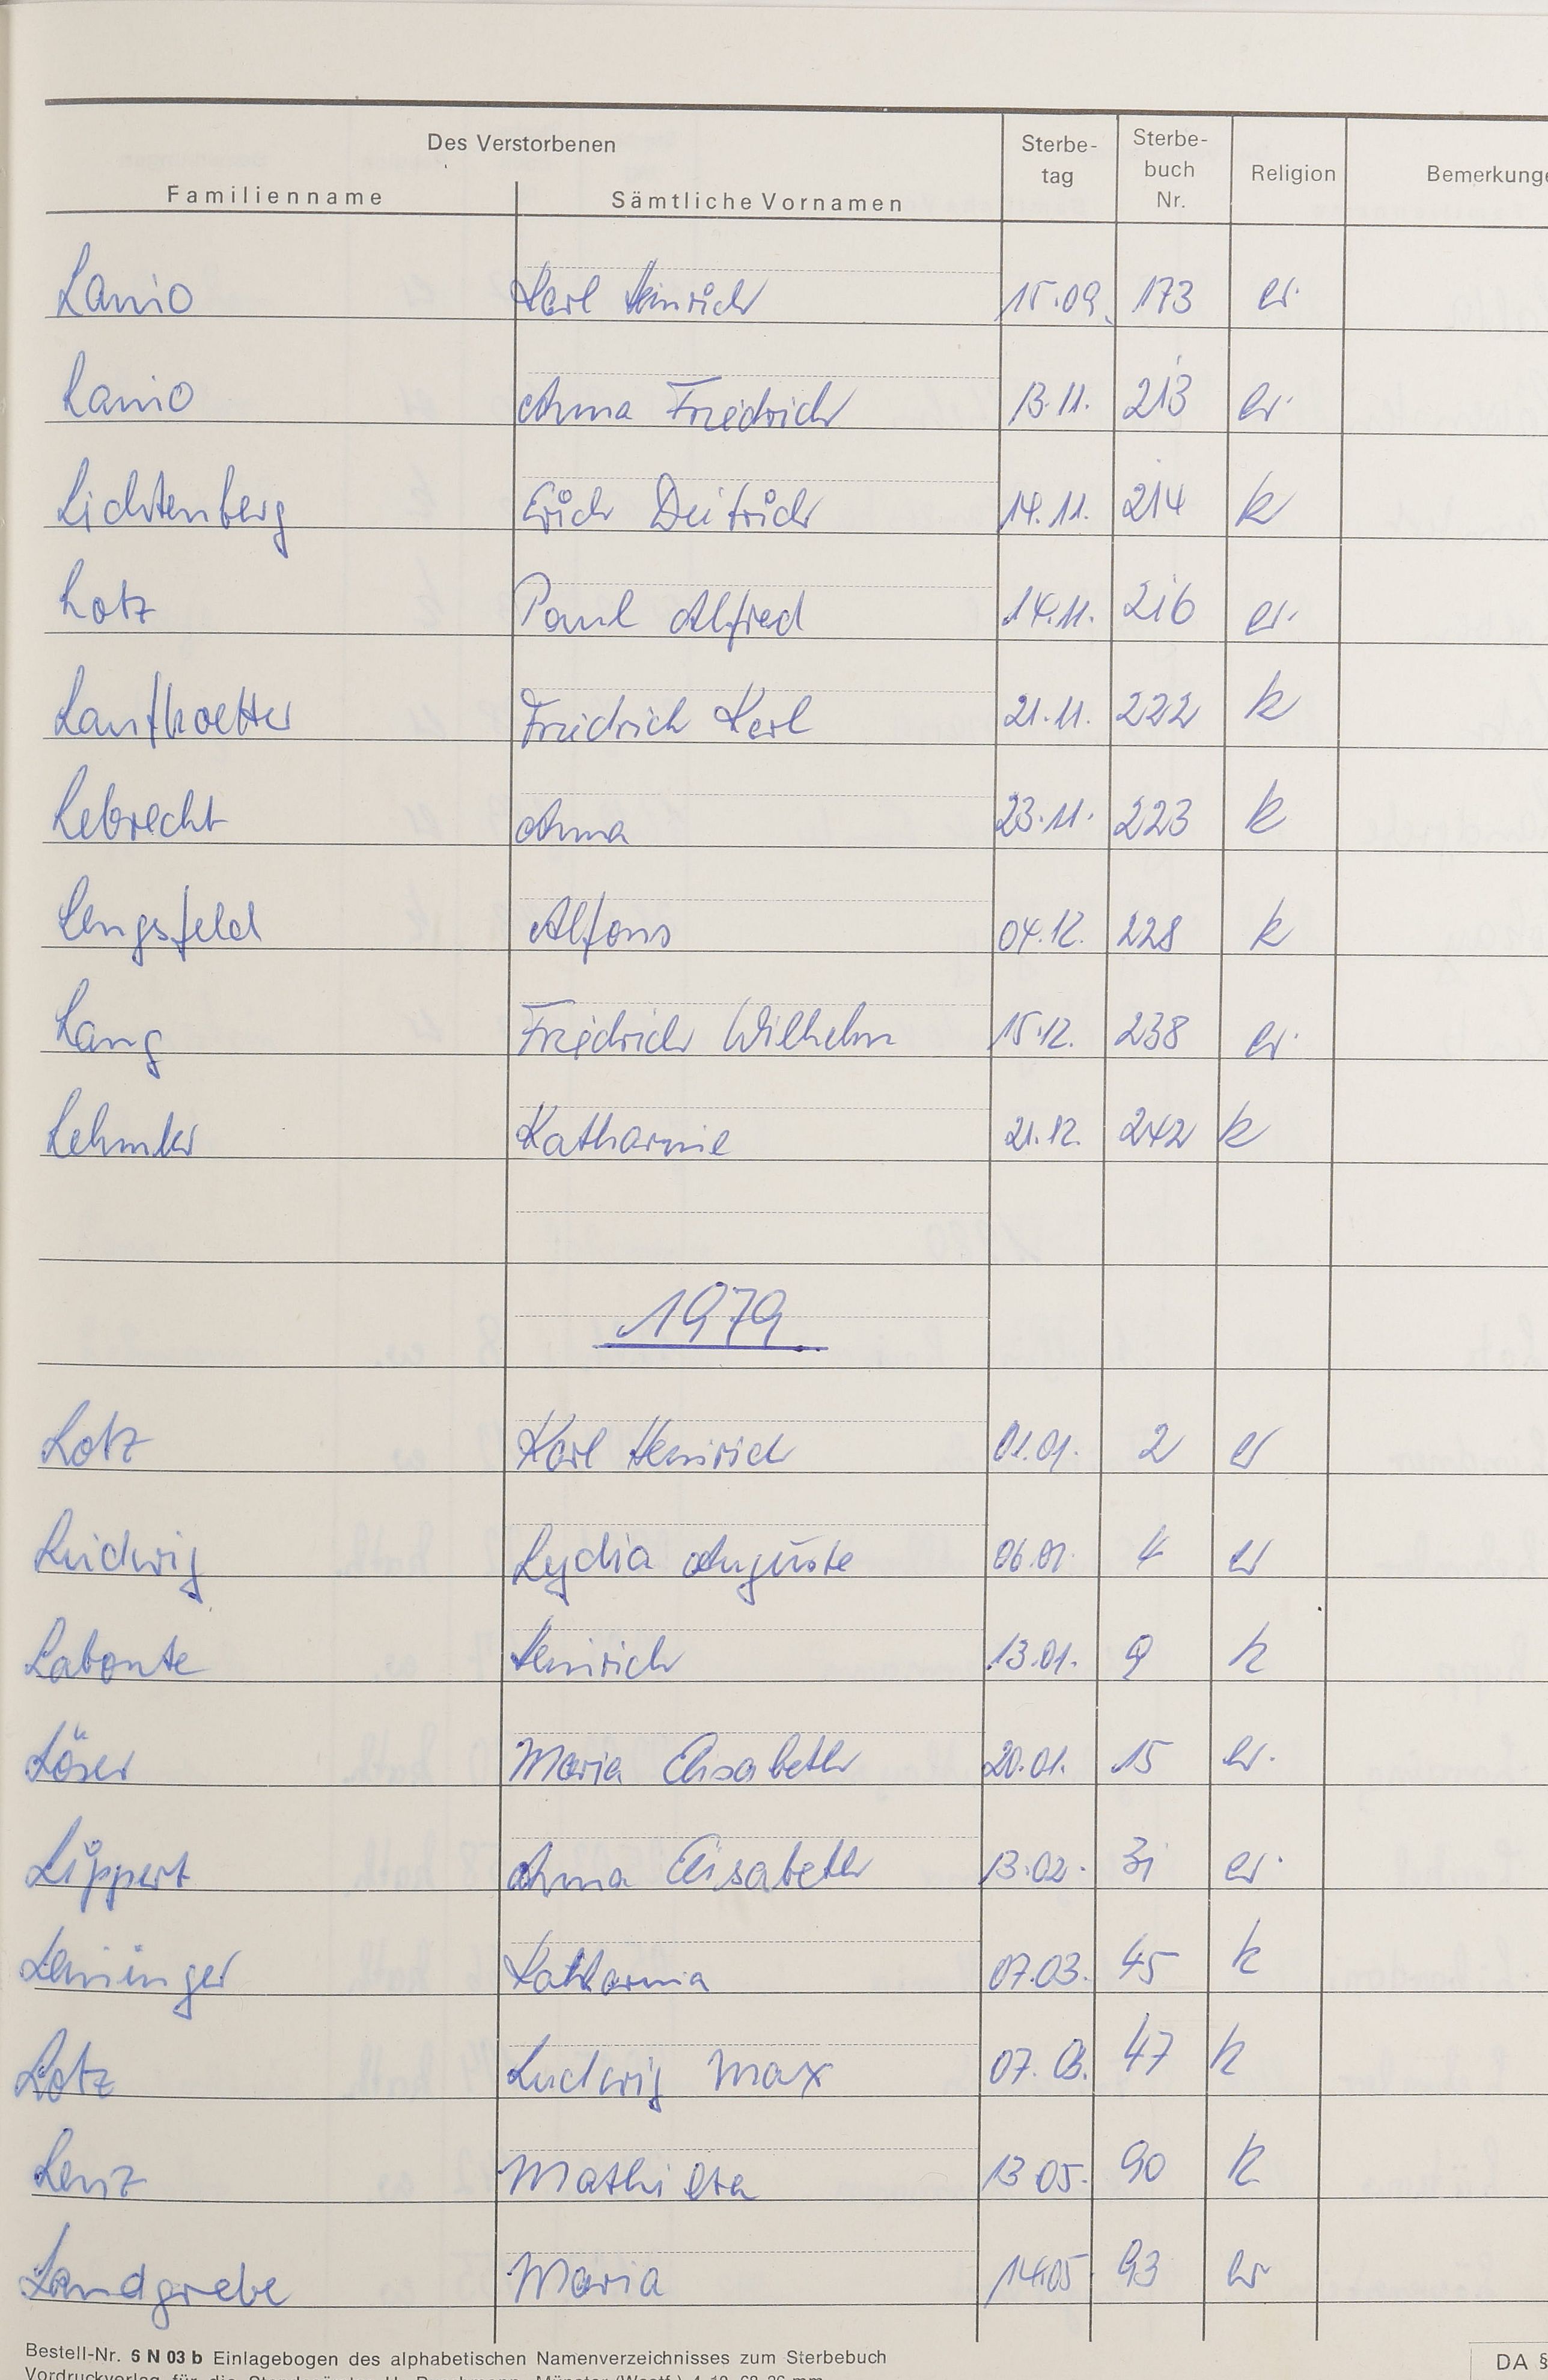 Des Verstorbenen
Familienname Sämtliche Vornamen Sterbe-tag Sterbe-buch Nr. Religion Bemerkunge
Lanio Karl Heinrich 15.09. 173 ev.
Lanio Anna Friedrich 13.11. 213 ev.
Lichtenberg Erich Deitrich 14.11. 214 k
Lotz Paul Alfred 14.11. 216 ev.
Laufkoetter Friedrich Karl 21.11. 222 k
Lebrecht Anna 23.11. 223 k
Lengsfeld Alfons 04.12. 228 k
Lang Friedrich Wilhelm 15.12. 238 ev.
Lehmler Katharine 21.12. 242 k
1979.
Lotz Karl Heinrich 01.01. 2 ev
Ludwig Lydia Auguste 06.01. 4 ev
Labonte Heinrich 13.01. 9 k
Löser Maria Elisabeth 20.01. 15 ev.
Lippert Anna Elisabeth 13.02. 31 ev.
Leininger Katharina 07.03. 45 k
Lotz Ludwig Max 07.03. 47 k
Lenz 13 05. 90 k
Landgrebe Maria 14.05 93 ev
Bestell-Nr. 6 N 03 b Einlagebogen des alphabetischen Namenverzeichnisses zum Sterbebuch
DA §